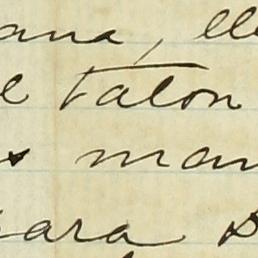 ana, ell
l talon
s man
ara s